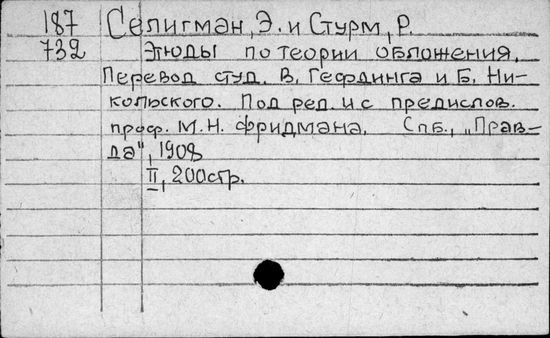 187 Селигман, Э. и Стурм, Р.
732 Этюды по теории обложения.
Перевод студ. В. Гефдинга и Б. Ни-
кольского. Под ред. и с предислов.
проф. М.Н. Фридмана. Спб., „Прав-
да", 1908
II, 200стр.